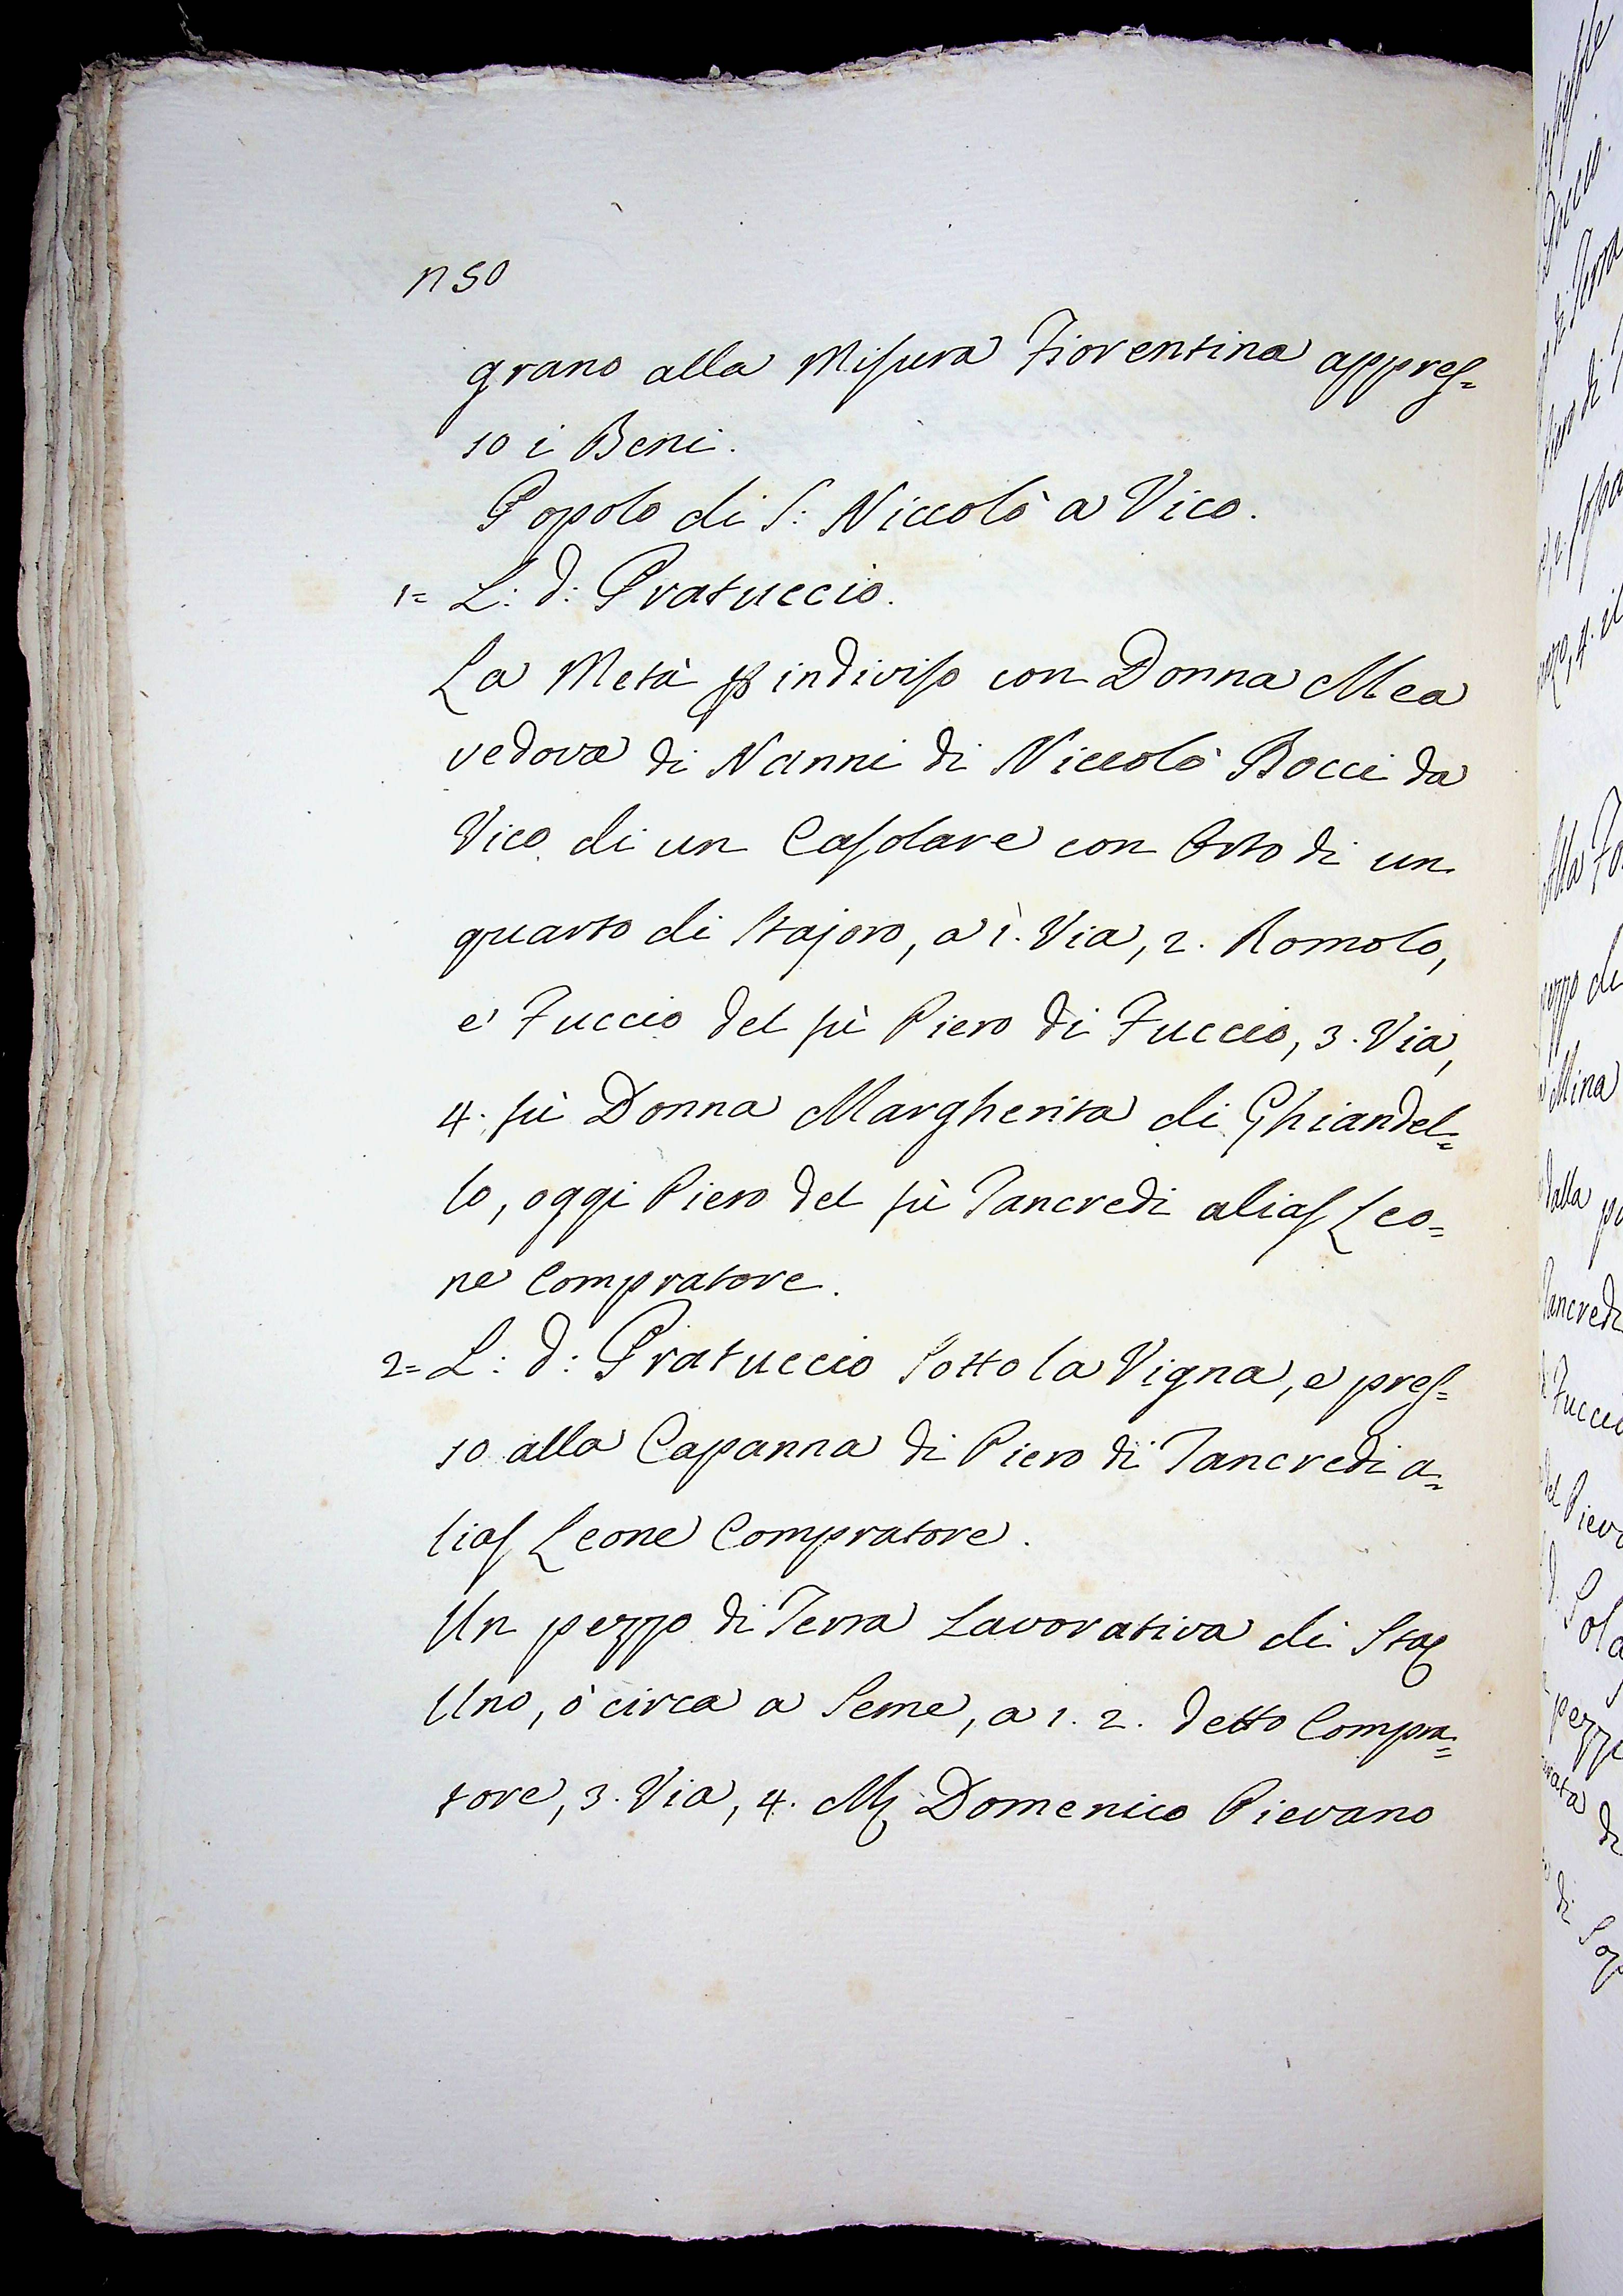 n 50
grano alla Misura Fiorentina appres=
so i Beni.
Popolo di S: Niccolò a Vico.
1= L: d: Pratuccio.
La Metà p indiviso con Donna Mea
vedova di Nanni di Niccolò Bocci da
Vico di un Casolare con Orto di un
quarto di Stajoro, a 1. Via, 2. Romolo,
e Fuccio del fù Piero di Fuccio, 3. Via,
4. fù Donna Margherita di Ghiandel=
lo, oggi Piero del fù Tancredi alias Leo=
ne Compratore.
2= L: d: Pratuccio sotto la Vigna, e pres=
so alla Capanna di Piero di Tancredi a=
lias Leone Compratore.
Un pezzo di Terra Lavorativa di Sta
Uno, ò circa a Seme, a 1. 2. detto Compra=
tore, 3. Via, 4. M Domenico Pievano